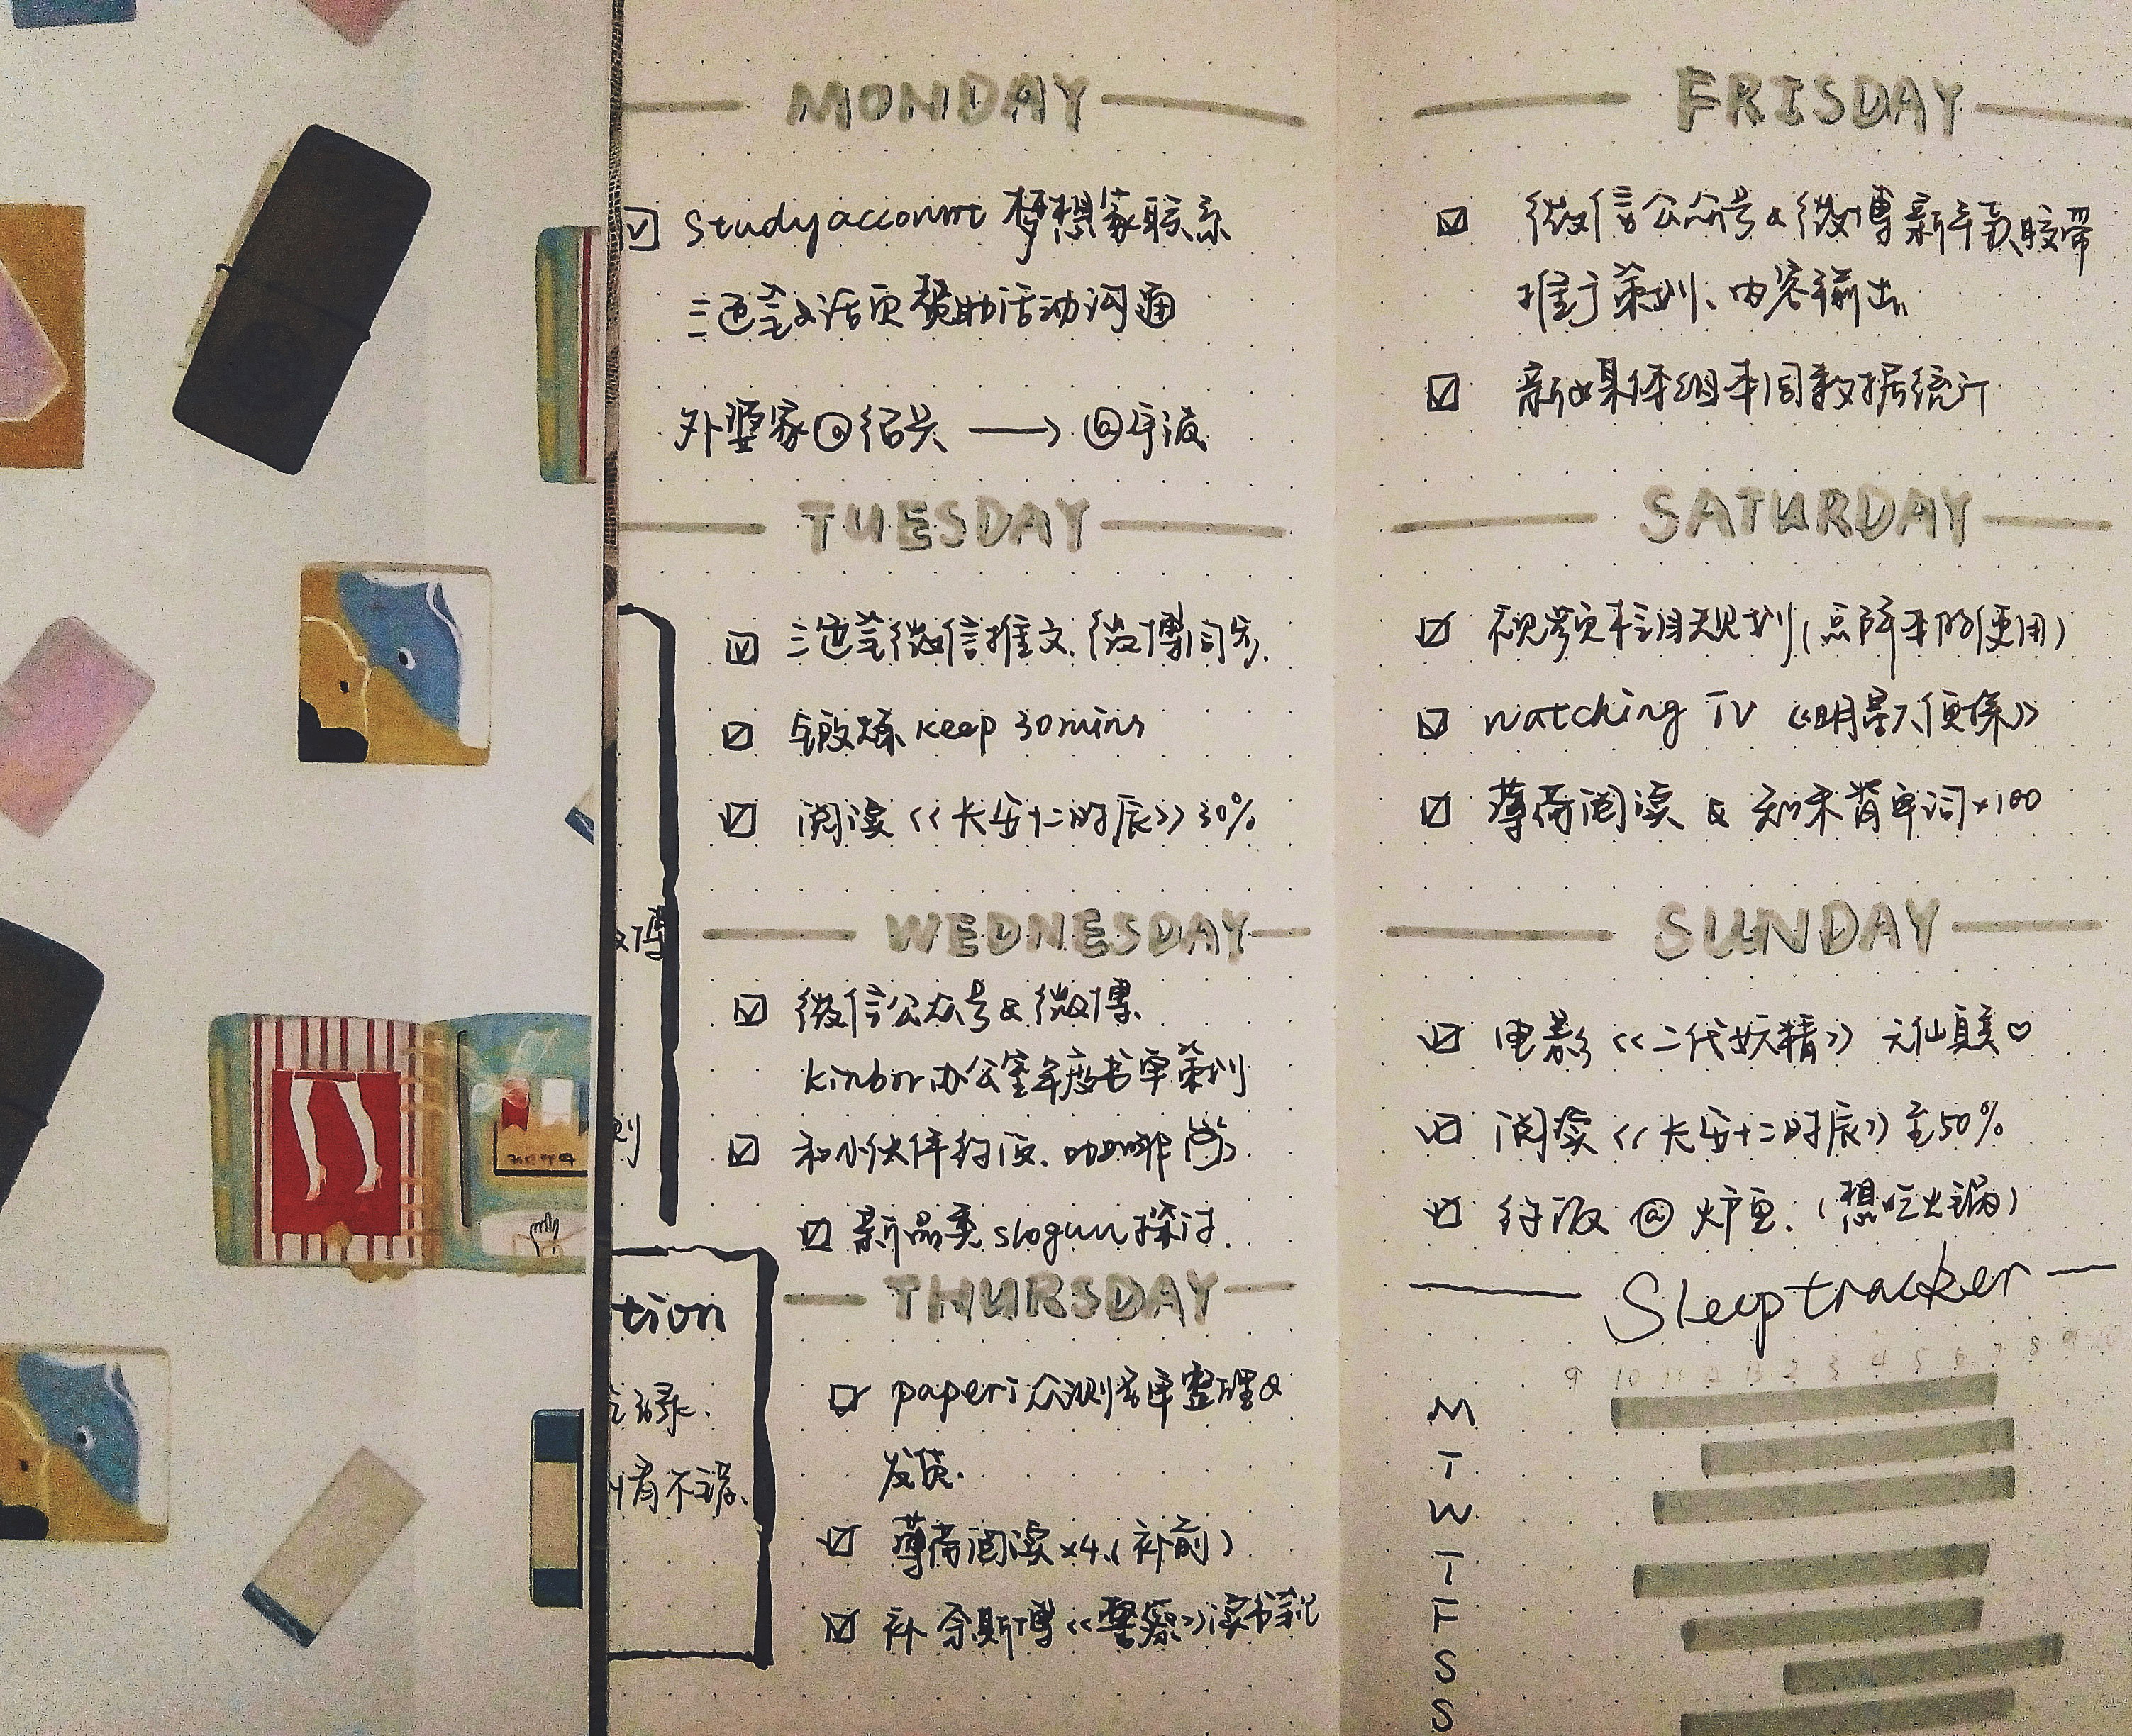 MONDAY
Studyaccount 梦想家联系
三色堇&活页赞助活动沟通
外婆家@绍兴 → @宁波
TUESDAY
三色堇微信推文.微博同步.
锻炼 keep 30mins
阅读《长安十二时辰》30%
WEDNESDAY
微信公众号&微博.
kinbor办公室年度书单策划
和小伙伴约饭.咖啡
新品类 slogun探讨.
THURSDAY
paperi众测名单整理&
发货.
薄荷阅读×4.(补前)
补 奈斯博《警察》读书笔记
博
划
tion
录.
有不误.
FRISDAY
微信公众号&微博新年款胶带
推广策划、内容输出
新媒体组本周数据统计
SATURDAY
视频栏目规划(点阵本的使用)
watching TV 《明星大侦探》
薄荷阅读 & 知米背单词×100
SUNDAY
电影《二代妖精》亓仙真美♡
阅读《长安十二时辰》至50%
约饭 @ 炉鱼.(想吃火锅)
Sleeptracker
9 10 11 12 13 2 3 4 5 6 7 8 9 10
M
T
W
T
F
S
S